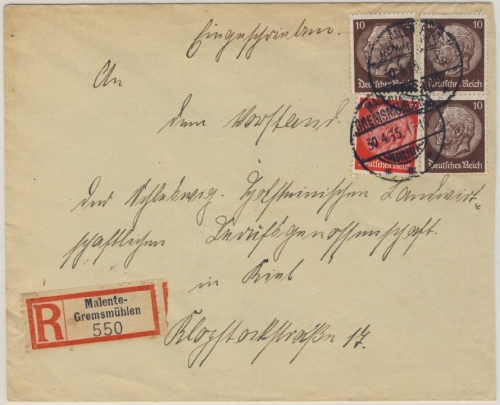 Eingeschrieben.
An
dem Vorstand
der Schleswig-Holsteinischen Landwirt-
schaftlichen Berufsgenossenschaft
in Kiel
Klopstockstraße 17.
10
10
Deutsches Reich
Deutsches Reich
10
Deutsches Reich
Deutsches Reich
30.4.35
R
Malente-
Gremsmühlen
550